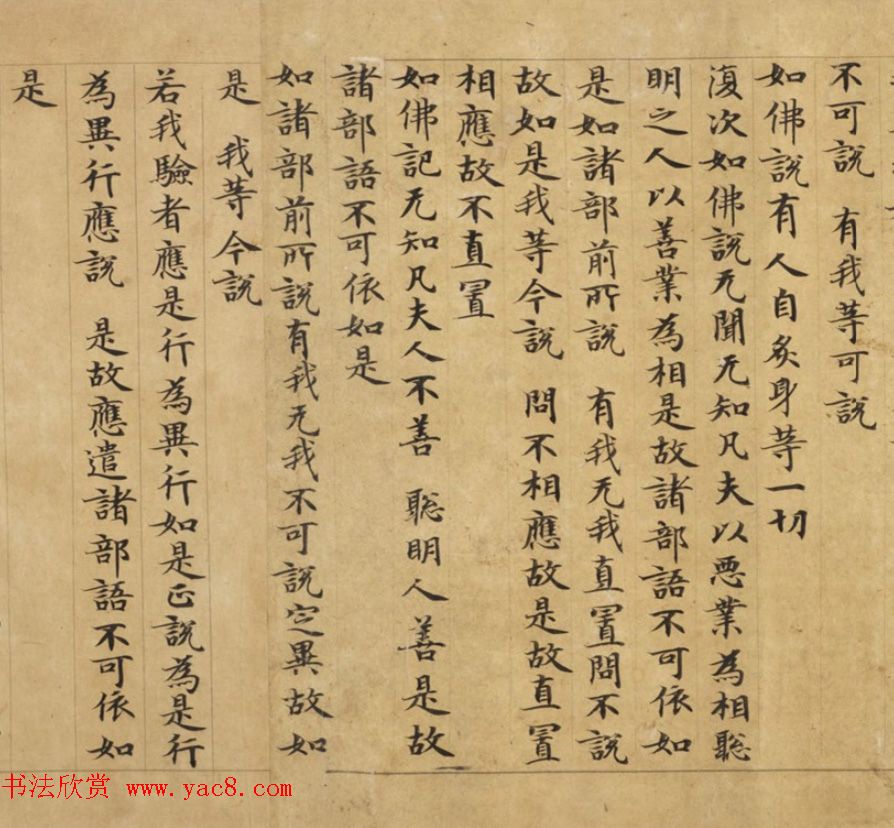 不可說 有我等可說
如佛說有人自炙身等一切
復次如佛說无聞无知凡夫以惡業為相聡
明之人以善業為相是故諸部語不可依如
是如諸部前所說 有我无我直置問不說
故如是我等今說 問不相應故是故直置
相應故不直置
如佛記无知凡夫人不善 聡明人善是故
諸部語不可依如是
如諸部前所說有我无我不可說定異故如
是 我等今說
若我驗者應是行為異行如是正說為是行
為異行應說 是故應遣諸部語不可依如
是
书法欣赏 www.yac8.com